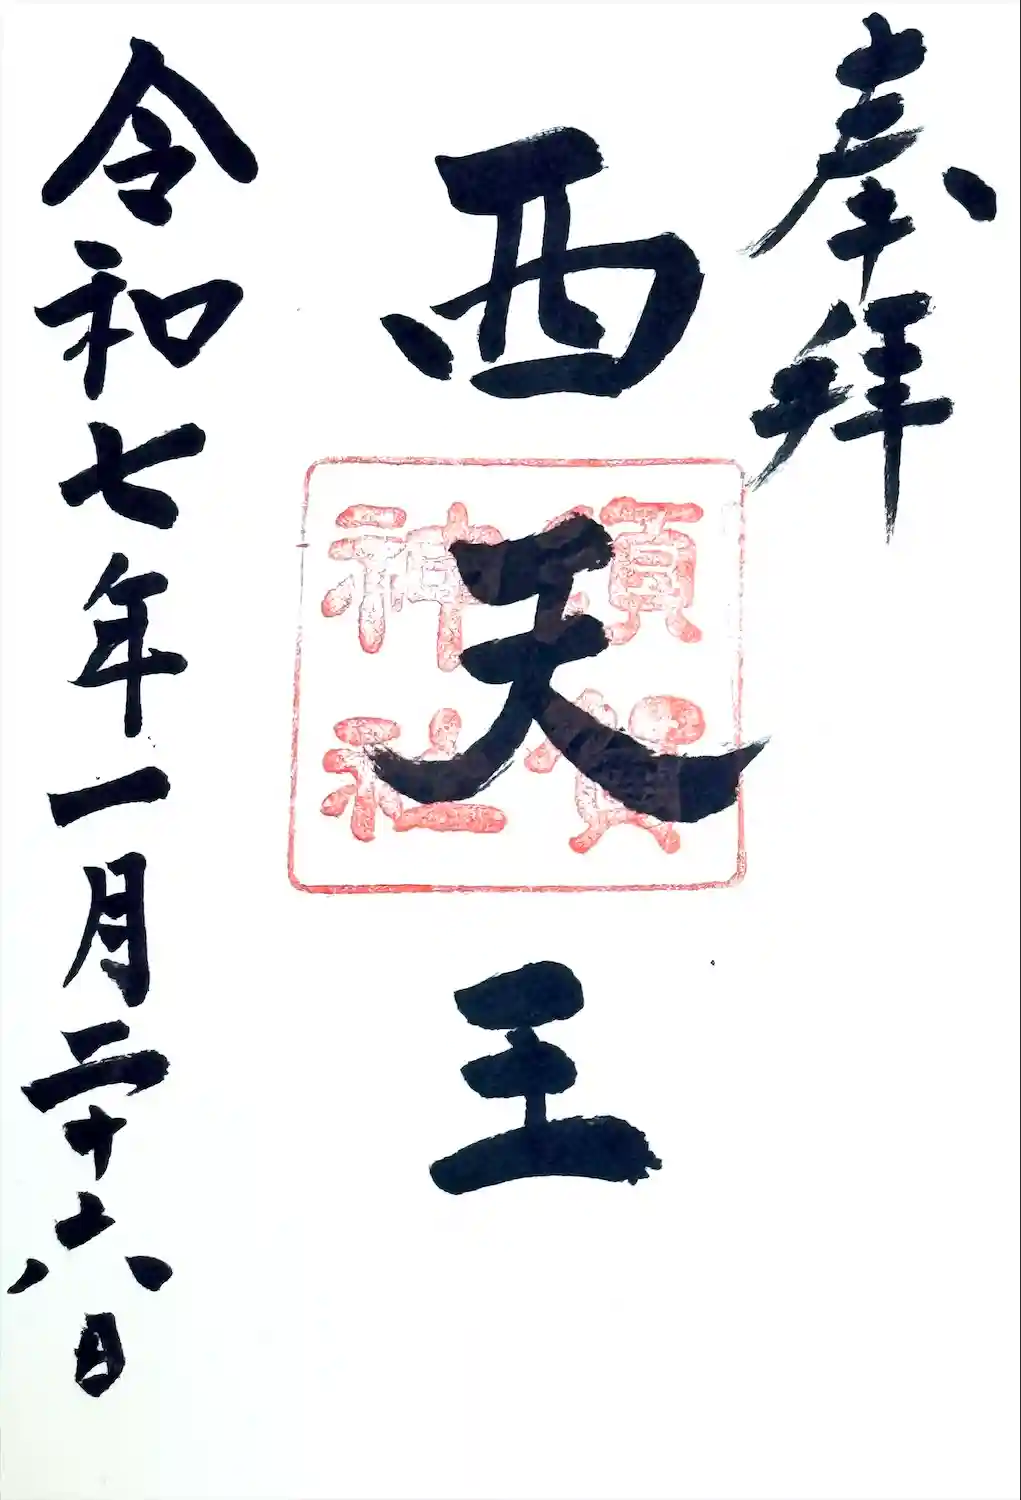 奉拜
西天王
須賀
神社
令和七年一月二十六日